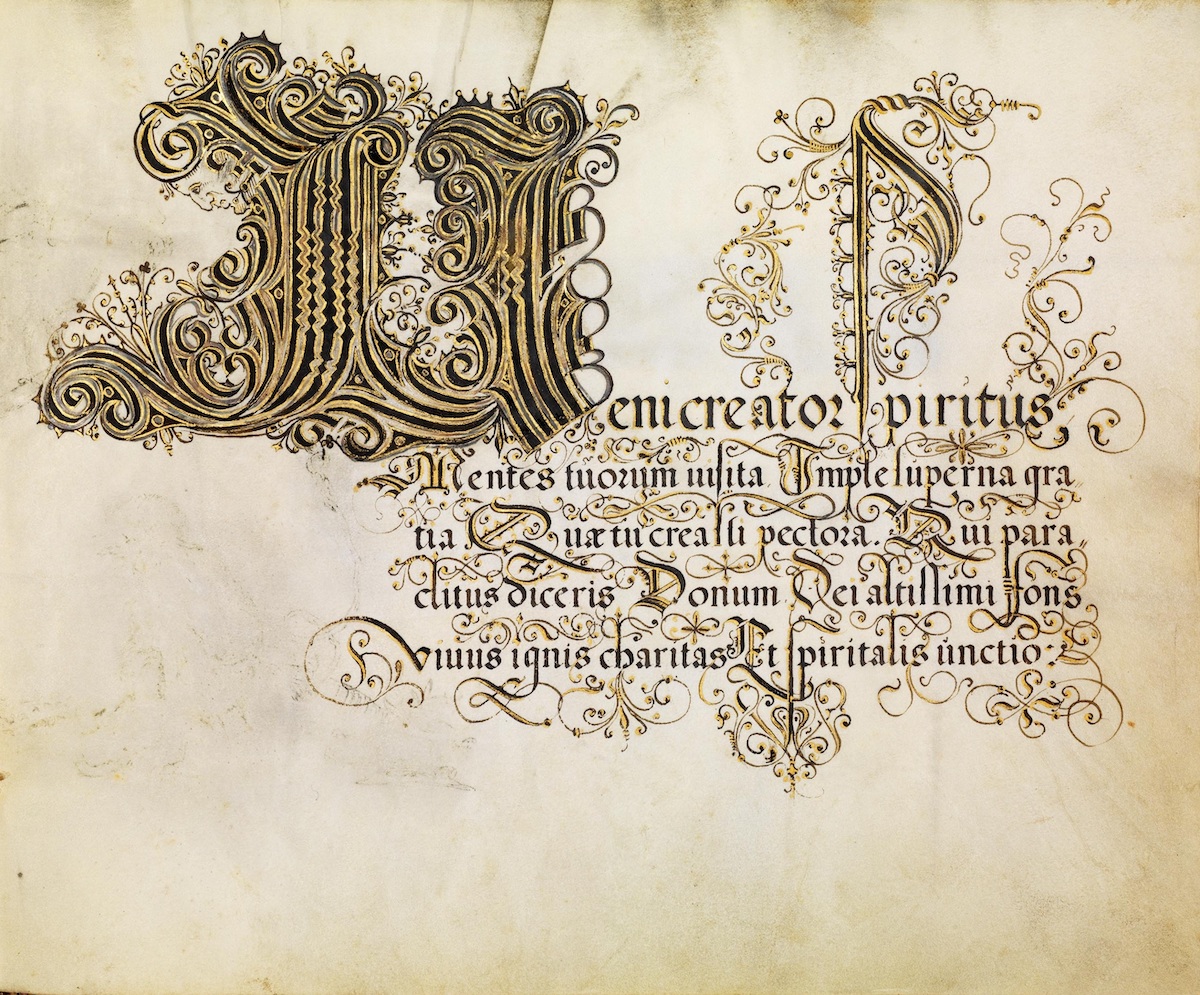 Veni creator Spiritus
Mentes tuorum uisita Imple superna gra
tia Quæ tu creasti pectora. Qui para„
clitus diceris Donum Dei altissimi fons
viuus ignis charitas Et spiritalis unctio: